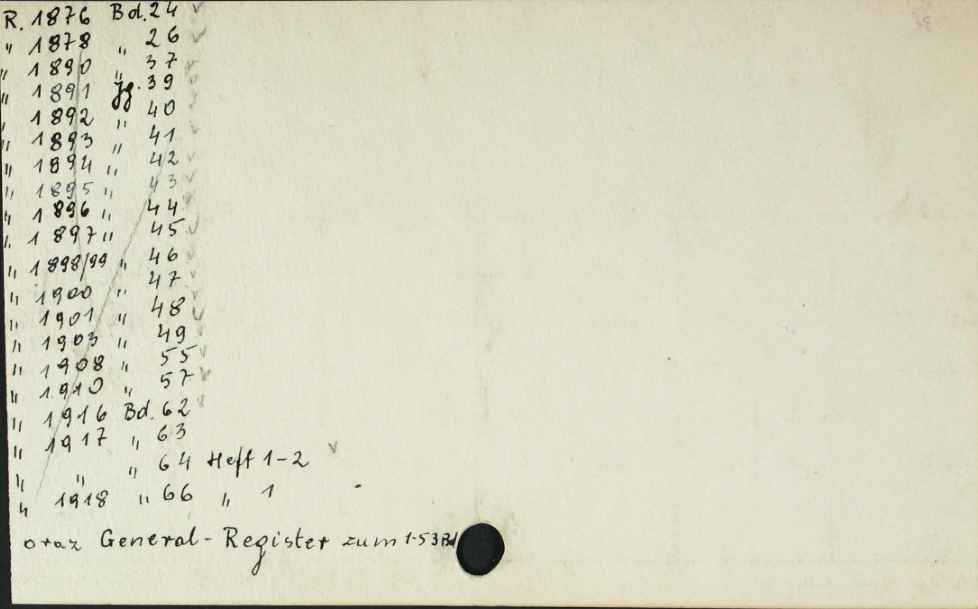 R. 1876 Bd. 24 ✓
" 1878 " 26
" 1890 " 37
" 1891 Jg. 39
" 1892 " 40
" 1893 " 41
" 1894 " 42
" 1895 " 43
" 1896 " 44
" 1897 " 45
" 1898/99 " 46
" 1900 " 47
" 1901 " 48
" 1903 " 49
" 1908 " 55
" 1910 " 57
" 1916 Bd. 62
" 1917 " 63
" " " 64 Heft 1-2 ✓
" 1918 " 66 " 1
oraz General-Register zum 1-53 Bd